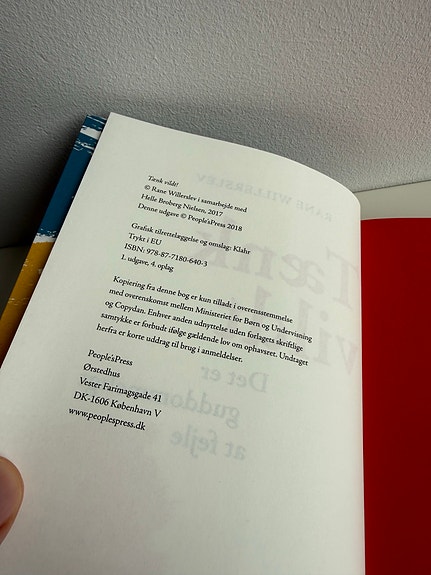 Tænk vildt!
© Rane Willerslev i samarbejde med
Helle Broberg Nielsen, 2017
Denne udgave © People'sPress 2018
Grafisk tilrettelæggelse og omslag: Klahr
Trykt i EU
ISBN: 978-87-7180-640-3
1. udgave, 4. oplag
Kopiering fra denne bog er kun tilladt i overensstemmelse
med overenskomst mellem Ministeriet for Børn og Undervisning
og Copydan. Enhver anden udnyttelse uden forlagets skriftlige
samtykke er forbudt ifølge gældende lov om ophavsret. Undtaget
herfra er korte uddrag til brug i anmeldelser.
People'sPress
Ørstedhus
Vester Farimagsgade 41
DK-1606 København V
www.peoplespress.dk
RANE WILLERSLEV
Tænk
vildt
Det er
guddommeligt
at fejle